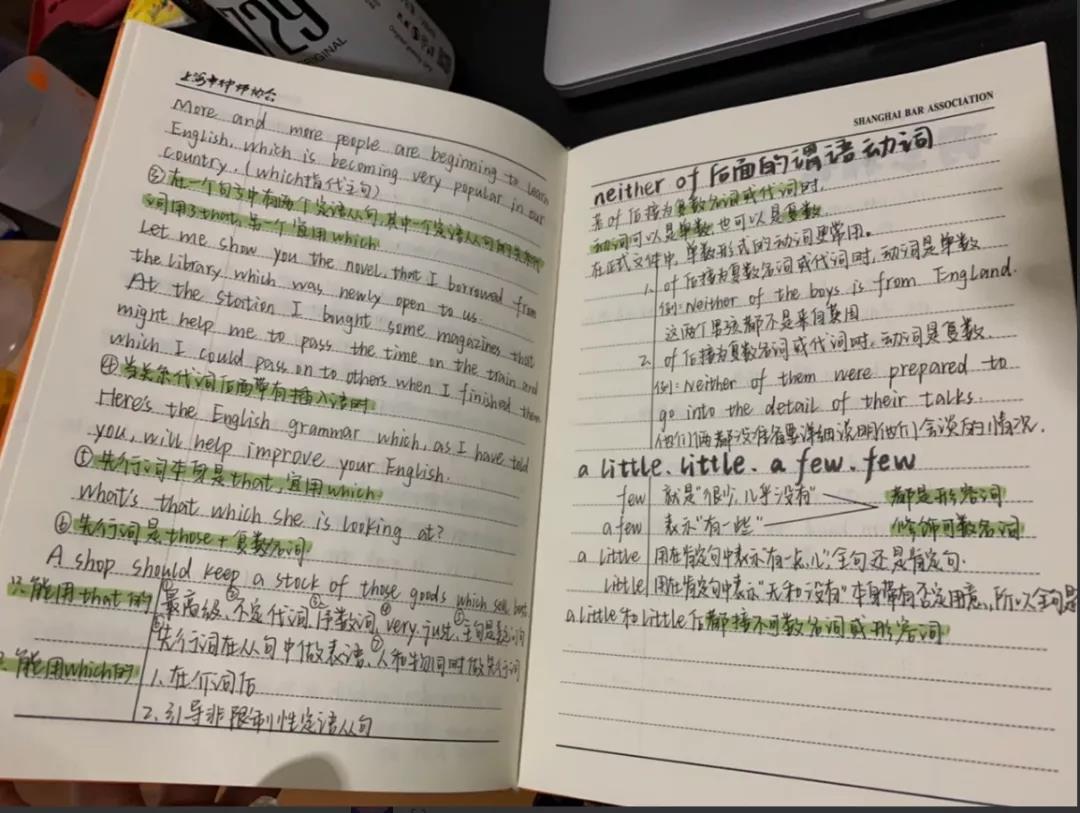 729
ORIGINAL
上海市律师协会
More and more people are beginning to learn
English, which is becoming very popular in our
country. (which指代主句)
③在一个句子中有两个定语从句,其中一个定语从句的关系代
词用了that,另一个宜用which
Let me show you the novel that I borrowed from
the library which was newly open to us.
At the station I bought some magazines that
might help me to pass the time on the train and
which I could pass on to others when I finished them
④当关系代词后面带有插入语时
Here's the English grammar which, as I have told
you, will help improve your English.
⑤先行词本身是that,宜用which
What's that which she is looking at?
⑥先行词是those+复数名词
A shop should keep a stock of those goods which sell best.
只能用that的 ①最高级、②不定代词、③序数词、④very、just、⑤主句是疑问句
⑥先行词在从句中做表语、⑦人和物同时做先行词
只能用which的 1、在介词后
2、引导非限制性定语从句
SHANGHAI BAR ASSOCIATION
neither of 后面的谓语动词
若of后接为复数名词或代词时,
动词可以是单数也可以是复数
在正式文件中,单数形式的动词更常用。
1、of后接为复数名词或代词时,动词是单数
例:Neither of the boys is from England.
这两个男孩都不是来自英国
2、of后接为复数名词或代词时,动词是复数
例:Neither of them were prepared to
go into the detail of their talks.
他们俩都没准备要详细说明他们会谈的情况.
a little、little、a few、few
few 就是"很少,几乎没有" 都是形容词
a few 表示"有一些" 修饰可数名词
a little 用在肯定句中表示"有一点儿"全句还是肯定句.
little 用在肯定句中表示"无和没有"本身带有否定用意,所以全句是
a little和little后都接不可数名词或形容词